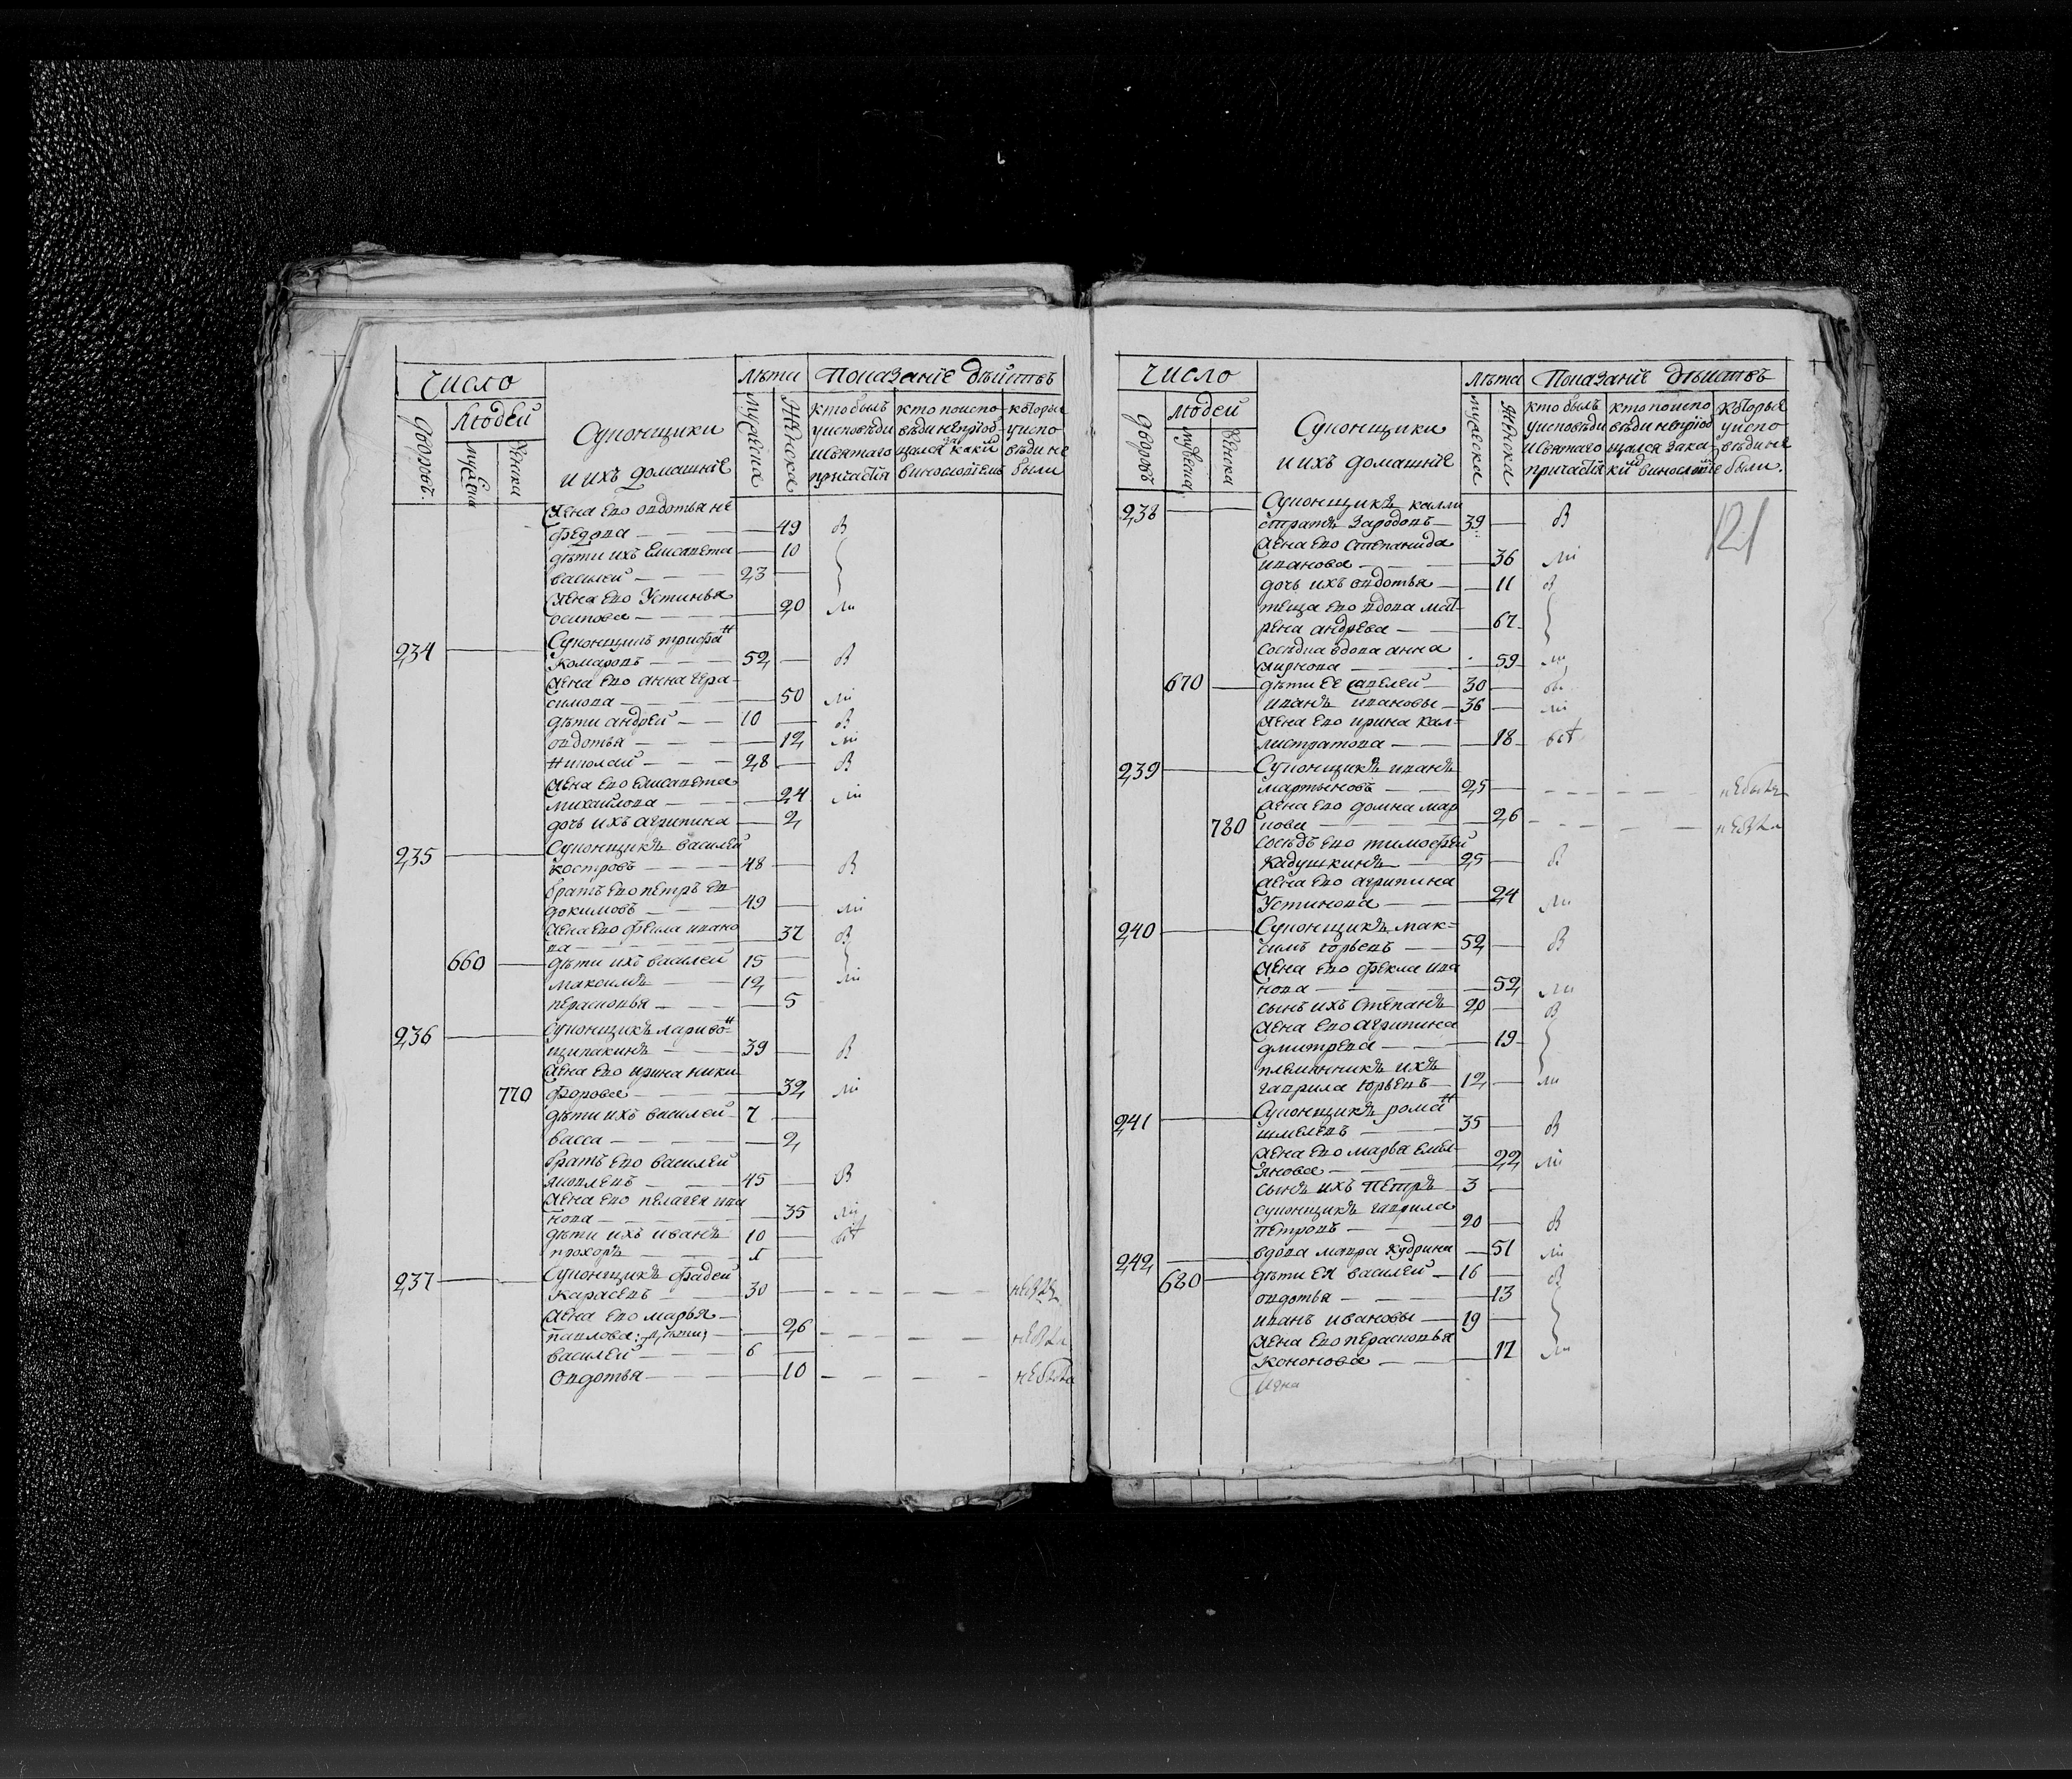 Число
Людей
Дворовъ
мужеска
женска
Супонщики
и ихъ домашнїе
лѣта
мужеска
женска
Показанїе дѣиствъ
кто былъ
уисповѣди
исвятаго
причастїя
кто поиспо-
вѣди непрїоб-
щался
которыя
уиспо
вѣди не
были
Жена ево овдотья не
федова — 49 В
дѣти ихъ елисавета — 10
василей — 23
Жена ево Устинья
осипова — 20 ли
234 Супонщикъ трифан
Комаровъ — 52 В
жена ево анна гера-
симова — 50 ли
дѣти андрей — 10 В
овдотья — 12 ли
николай — 28 В
Жена ево елисавета
михайлова — 24 ли
дочь ихъ агрипина — 2
235 Супонщикъ василей
костровъ — 48 В
братъ ево петръ ев
докимовъ — 49 ли
жена ево фекла ивано
ва — 37 В
660 дѣти ихъ василей 15
максимъ — 12 ли
перасковья — 5
236 Супонщикъ ларивон
щипакинъ — 39 В
Жена ево ирина ники
770 форова — 32 ли
дѣти ихъ василей 7
васса — 2
братъ ево василей
яковлевъ — 45 В
жена ево пелагея ива
нова — 35 ли
дѣти ихъ иванъ 10
прохоръ — 1
237 Супонщикъ фадей
Карасевъ — 30
жена ево марья
павлова: дѣти — 26
василей — 6
Овдотья — 10
Число
Людей
Дворовъ
мужеска
женска
Супонщики
и ихъ домашнїе
лѣта
мужеска
женска
Показанїе дѣиствъ
кто былъ
уисповѣди
исвятаго
причастїя
кто поиспо
вѣди непрїоб
щался зака-
которыя
уиспо
вѣди не
были.
121
238 Супонщикъ кали
стратъ Зародовъ — 39 В
жена ево степанида
иванова — 36 ли
дочь ихъ овдотья — 11 В
теща ево вдова мат-
рена андрева — 67
сосѣдка вдова анна
— 59 ли
670 дѣти ее савелей — 30
иванъ ивановы — 36 ли
Жена ево ирина кал-
листратова — 18
239 Супонщикъ иванъ
мартыновъ — 25
жена ево домна мар
780 нова — 26
сосѣдъ ево тимофей
Кадушкинъ — 25 В
жена ево агрипина
Устинова — 24 ли
240 Супонщикъ мак-
симъ юрьевъ — 52 В
Жена ево фекла ива
нова — 52 ли
сынъ ихъ Степанъ 20 В
Жена ево агрипина
дмитрева — 19
племянникъ ихъ
гаврила юрьевъ — 12 ли
241 Супонщикъ роман
шмелевъ — 35 В
жена ево марья емел-
янова — 22 ли
сынъ ихъ петръ — 3
супонщикъ гаврила
петровъ — 20 В
242 вдова мавра Кудрина — 51 ли
680 дѣти ея василей — 16 В
овдотья — 13
иванъ ивановы — 19
Жена ево перасковья
Кононова — 17 ли